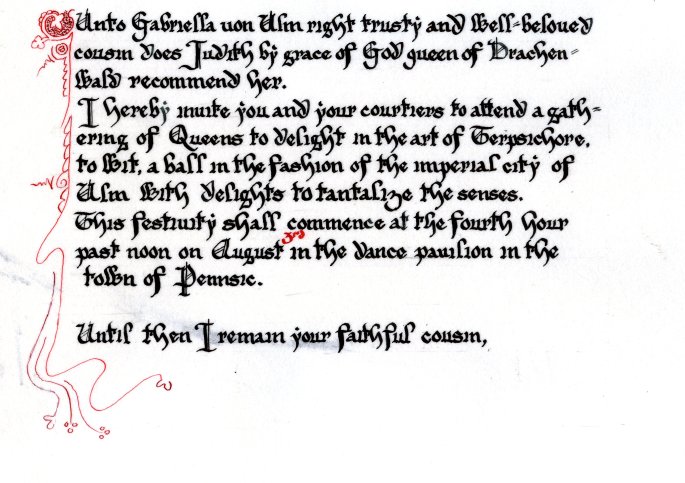 Unto Gabriella von Ulm right trusty and well-beloved
cousin does Judith by grace of God queen of Drachen=
wald recommend her.
I hereby invite you and your courtiers to attend a gath=
ering of Queens to delight in the art of Terpsichore,
to wit, a ball in the fashion of the imperial city of
Ulm with delights to tantalize the senses.
This festivity shall commence at the fourth hour
past noon on August 3rd in the dance pavilion in the
town of Pennsic.
Until then I remain your faithful cousin,